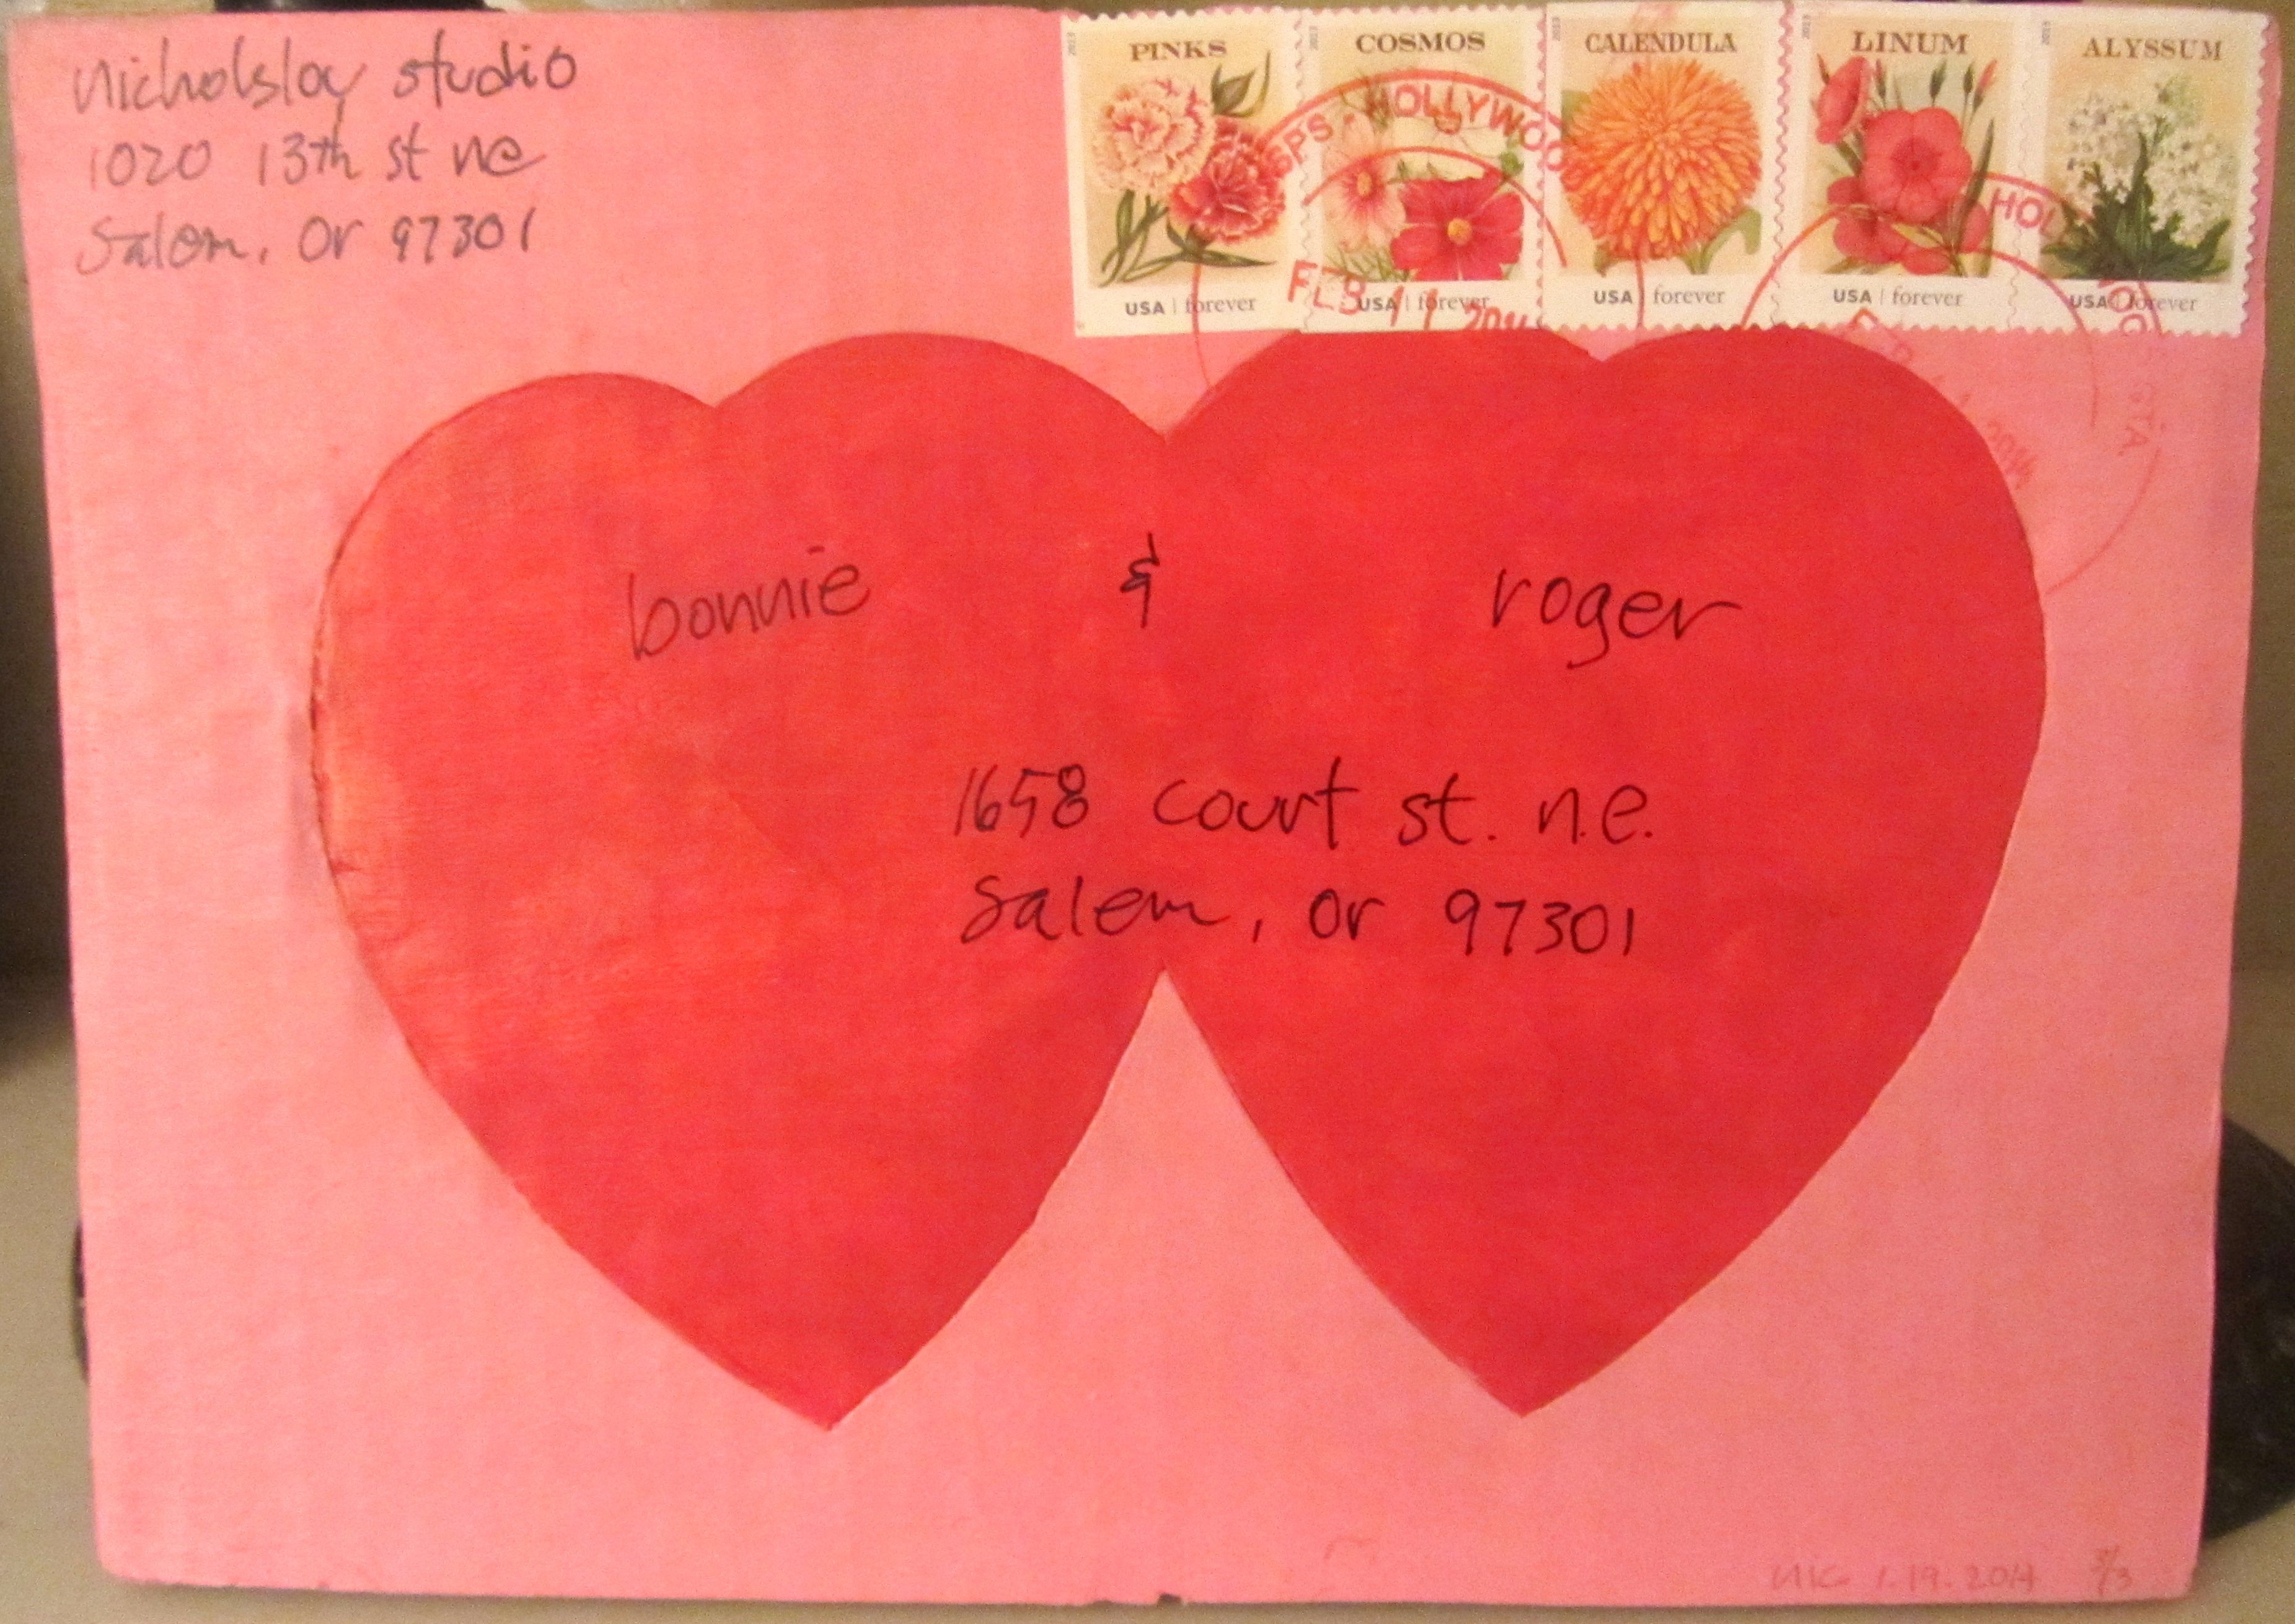 nicholsloy studio
1020 13th st ne
Salem, Or 97301
PINKS
COSMOS
CALENDULA
LINUM
ALYSSUM
2013
2013
2013
2013
2013
USA | forever
USA | forever
USA | forever
USA | forever
USA | forever
USPS - HOLLYWOOD
FEB 11 2014
HOLLYWOOD STA
FEB 11 2014
bonnie & roger
1658 court st. n.e.
Salem, Or 97301
1.19.2014 3/3